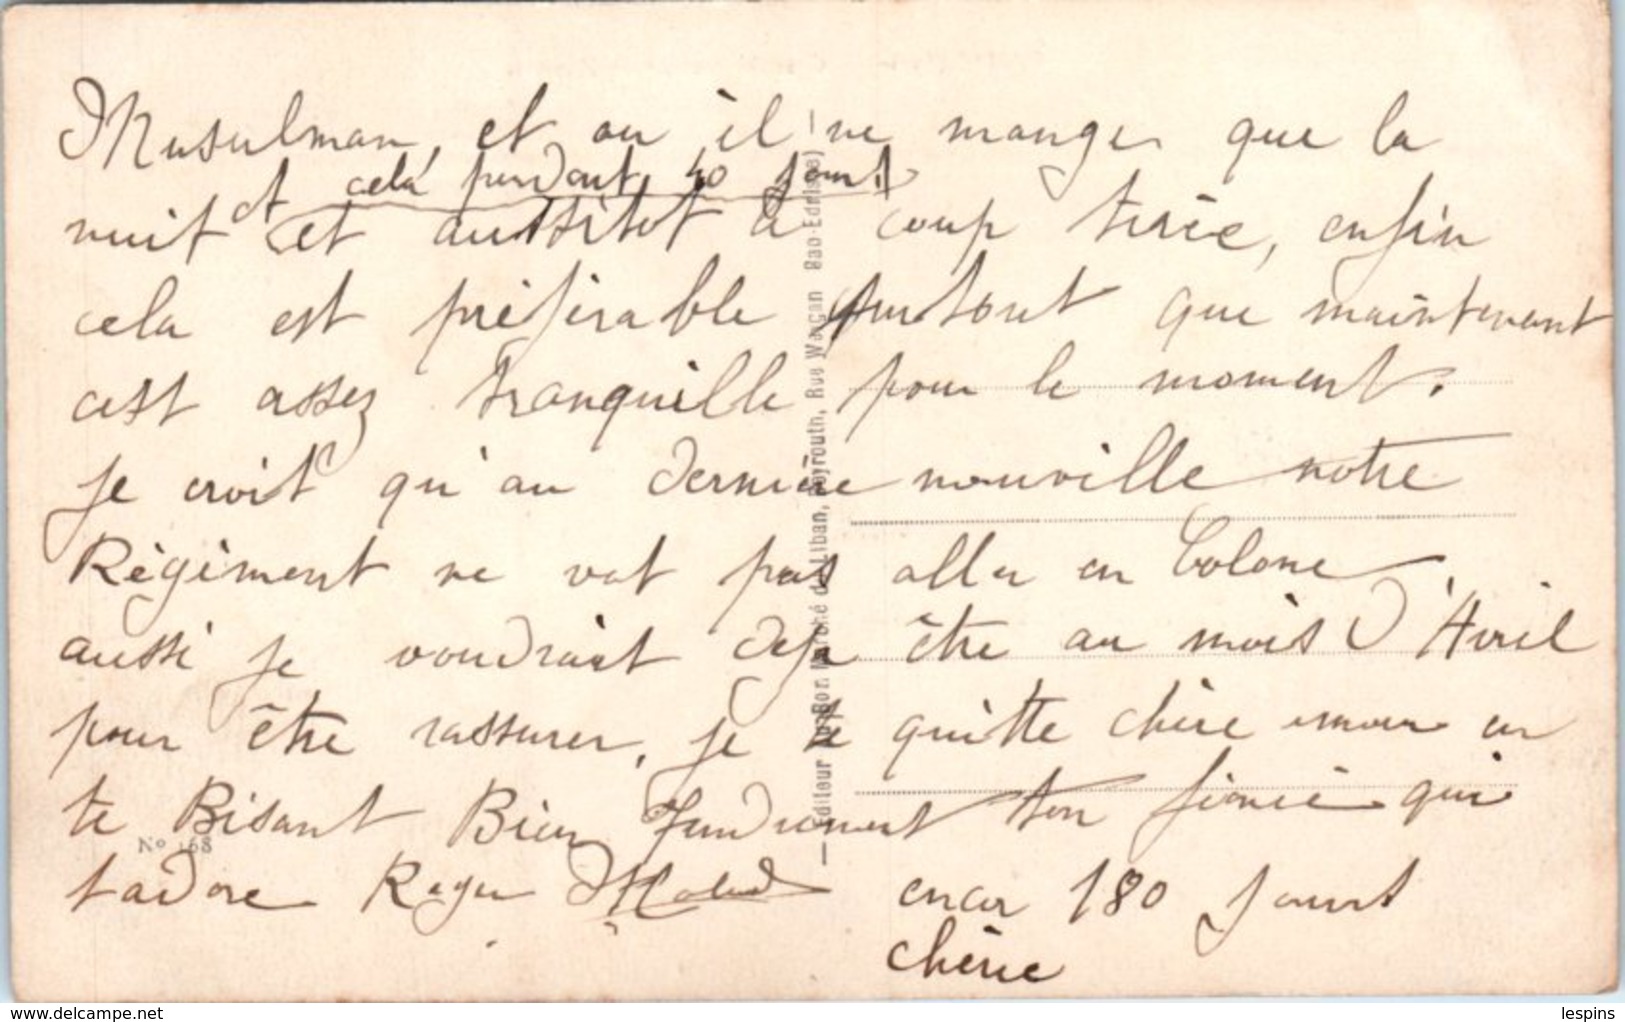 Musulman, et ou il ne manger que la
et celà pendant 40 jours
nuit et aussitot à coup tirée, enfin
cela est préférable surtout que maintenant
cest assez tranquille pour le moment.
je croit qu'au dernière nouville notre
Régiment ne vat pas aller en Colone,
aussi je voudrait deja être au mois d'Avril
pour être rassurer, je te quitte chère amour en
te Bisant Bien tendrement ton fiancé qui
tadore Roger
encor 180 jours
chérie
No 168
— Editeur Au Bon Marché du Liban, Beyrouth, Rue Weygan Bab-Edriss
lespins
www.delcampe.net